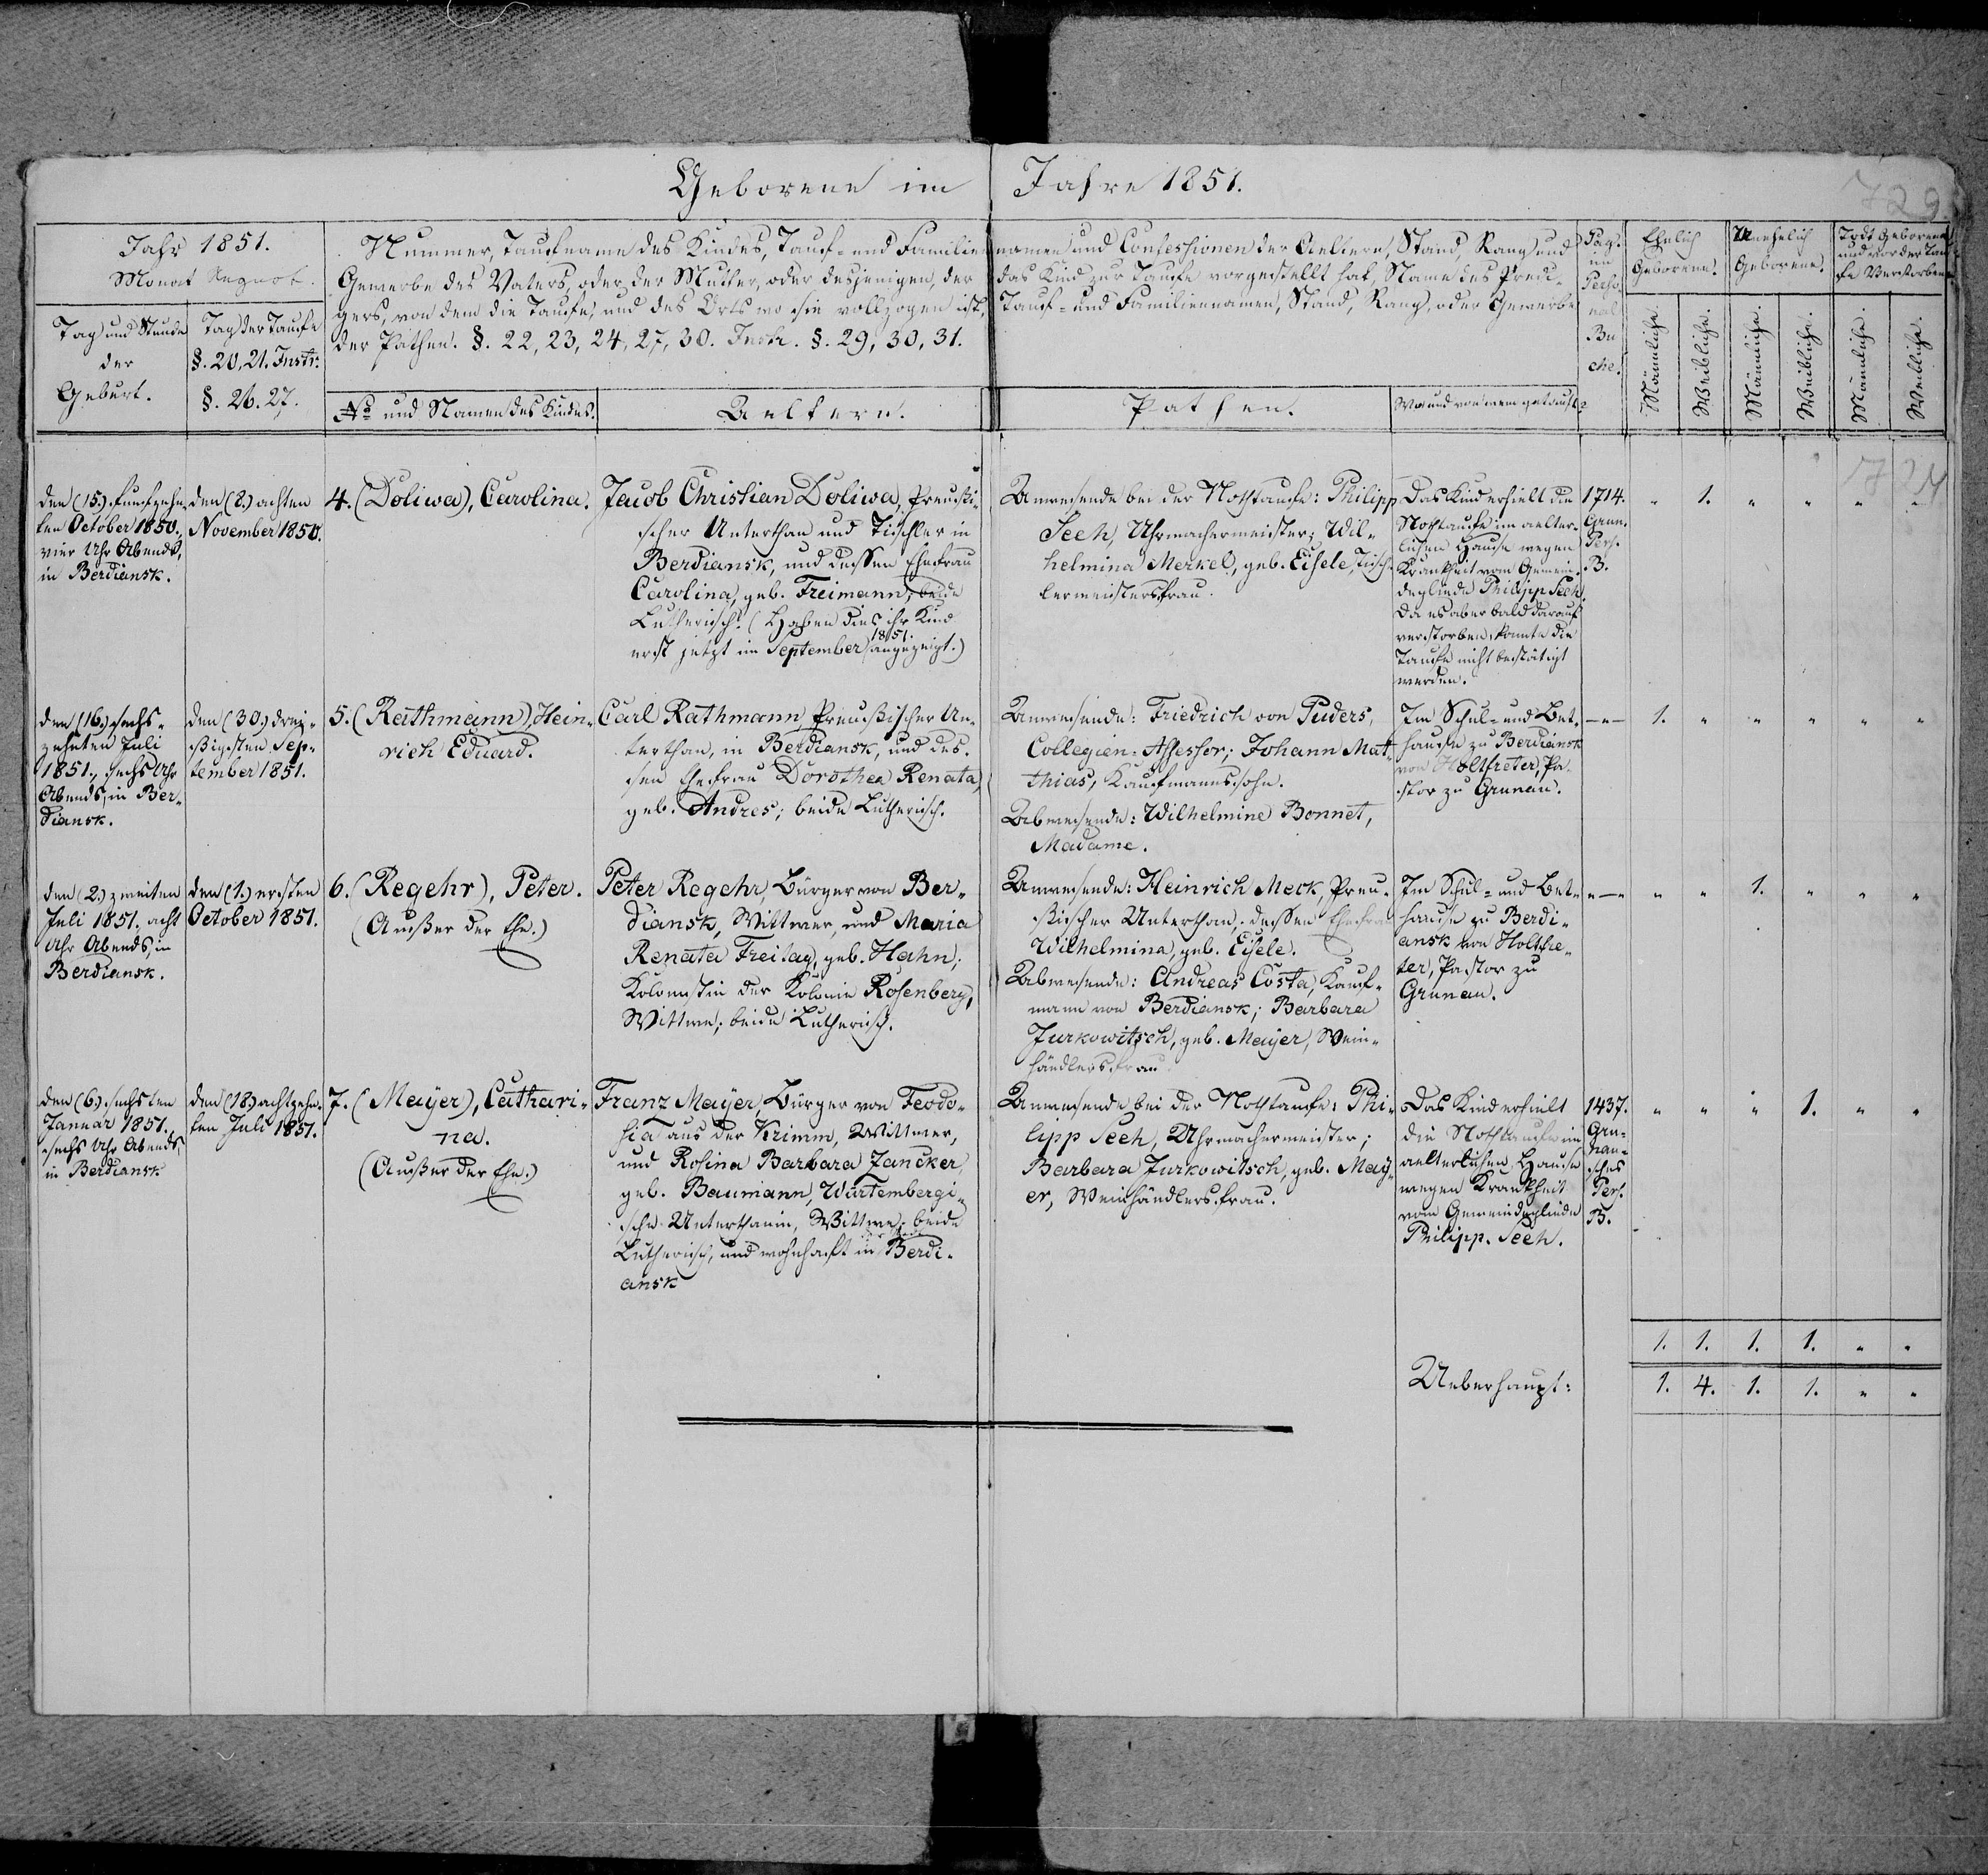 Geborene im Jahre 1851.
729.
724
Jahr 1851.
Monat
Tag und Stunde
der
Geburt.
Tag der Taufe
§. 20, 21. Instr.
§. 26. 27.
Nummer, Taufname des Kindes, Tauf- und Familiennamen und Confessionen der Aeltern, Stand, Rang und
Gewerbe des Vaters, oder der Mutter, oder desjenigen, der das Kind zur Taufe vorgestellt hat, Name des Predi-
gers, von dem die Taufe, und des Orts wo sie vollzogen ist, Tauf- und Familiennamen, Stand, Rang, oder Gewerbe
der Pathen. §. 22, 23, 24, 27, 30. Instr. §. 29, 30, 31.
No und Namen des Kindes.
Aeltern.
Pathen.
Wo und von wem getauft?
Pag.
im
Perso-
nal
Bu
che.
Ehelich
Geborene.
Unehelich
Geborene.
Todt Geborene
und vor der Tau-
fe Verstorbene
Männliche.
Weibliche.
Männliche.
Weibliche.
Männliche.
Weibliche.
den (15.) funfzehn-
ten October 1850.,
vier Uhr Abends,
in Berdiansk.
den (8.) achten
November 1850.
4. (Doliwa), Carolina.
Jacob Christian Doliwa, Preußi-
scher Unterthan und Tischler in
Berdiansk, und dessen Ehefrau
Carolina, geb. Freimann; beide
Lutherisch. (Haben dies ihr Kind
erst jetzt im September 1851. angezeigt.)
Anwesende bei der Nothtaufe: Philipp
Seeh, Uhrmachermeister; Wil-
helmina Merkel, geb. Eisele, Tisch-
lermeistersfrau.
Das Kind erhielt die
Nothtaufe im aelter-
lichen Hause wegen
Krankheit vom Gemein-
degliede Philipp Seeh.
Da es aber bald darauf
verstorben, konnte die
Taufe nicht bestätigt
werden.
1714.
Grun.
Pers.
B.
" 1. " " " "
den (16.) sechs-
zehnten Juli
1851., sechs Uhr
Abends, in Ber-
diansk.
den (30.) drei-
ßigsten Sep-
tember 1851.
5. (Rathmann), Hein-
rich Eduard.
Carl Rathmann Preußischer Un-
terthan, in Berdiansk, und des-
sen Ehefrau Dorothea Renata,
geb. Andres; beide Lutherisch.
Anwesende: Friedrich von Puders,
Collegien-Assessor; Johann Mat-
thias, Kaufmannssohn.
Abwesende: Wilhelmine Bonnet,
Madame.
Im Schul- und Bet-
hause zu Berdiansk
von Holtfreter, Pa-
stor zu Grunau.
—"—
1. " " " " "
den (2.) zweiten
Juli 1851. acht
Uhr Abends, in
Berdiansk.
den (1.) ersten
October 1851.
6. (Regehr), Peter.
(Außer der Ehe.)
Peter Regehr, Bürger von Ber-
diansk, Wittwer, und Maria
Renata Freitag, geb. Hahn;
Kolonistin der Kolonie Rosenberg,
Wittwe; beide Lutherisch.
Anwesende: Heinrich Merk, Preu-
ßischer Unterthan, dessen Ehefrau
Wilhelmina, geb. Eisele.
Abwesende: Andreas Costa, Kauf-
mann von Berdiansk; Barbara
Jurkowitsch, geb. Mayer, Wein-
händlersfrau.
Im Schul- und Bet-
hause zu Berdi-
ansk von Holtfre-
ter, Pastor zu
Grunau.
"—"
" " 1. " " "
den (6.) sechsten
Januar 1851.,
sechs Uhr Abends,
in Berdiansk
den (18.) achtzehn-
ten Juli 1851.
7. (Mayer), Cathari-
na.
(Außer der Ehe.)
Franz Mayer, Bürger von Feodo-
sia aus der Krimm, Wittwer,
und Rosina Barbara Jancker,
geb. Baumann, Würtembergi-
sche Unterthanin, Wittwe; beide
Lutherisch, und wohnhaft in Berdi-
ansk
Anwesende bei der Nothtaufe: Phi-
lipp Seeh, Uhrmachermeister;
Barbara Jurkowitsch, geb. May-
er, Weinhändlersfrau.
Das Kind erhielt
die Nothtaufe im
aelterlichen Hause
wegen Krankheit
vom Gemeindegliede
Philipp Seeh.
1437.
Gru-
nau-
sches
Pers.
B.
" " " 1. " "
1. 1. 1. 1. " "
Ueberhaupt:
1. 4. 1. 1. " "